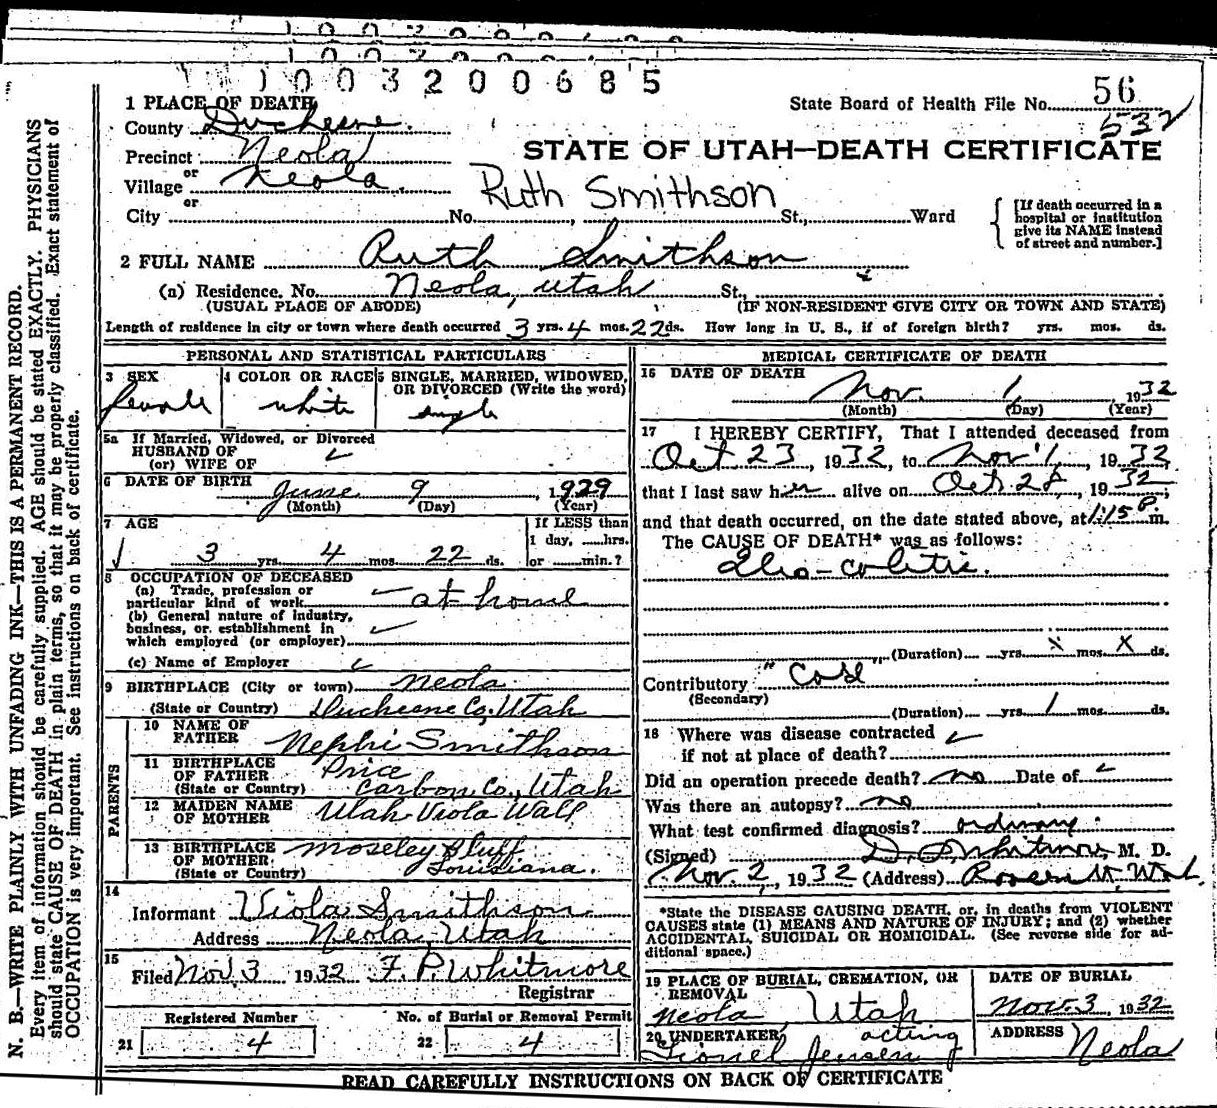 1003200685
1 PLACE OF DEATH
State Board of Health File No. 56
532
County Duchesne
STATE OF UTAH—DEATH CERTIFICATE
Precinct Neola
or
Village Neola
or
Ruth Smithson
City No. , St., Ward
[If death occurred in a hospital or institution give its NAME instead of street and number.]
2 FULL NAME Ruth Smithson
(a) Residence, No. Neola, Utah St.,
(USUAL PLACE OF ABODE) (IF NON-RESIDENT GIVE CITY OR TOWN AND STATE)
Length of residence in city or town where death occurred 3 yrs. 4 mos. 22 ds. How long in U. S., if of foreign birth? yrs. mos. ds.
PERSONAL AND STATISTICAL PARTICULARS
3 SEX 4 COLOR OR RACE 5 SINGLE, MARRIED, WIDOWED,
OR DIVORCED (Write the word)
female white single
5a If Married, Widowed, or Divorced
HUSBAND OF
(or) WIFE OF
6 DATE OF BIRTH June 9, 1929
(Month) (Day) (Year)
7 AGE If LESS than
1 day, hrs.
3 yrs. 4 mos. 22 ds. or min.?
8 OCCUPATION OF DECEASED
(a) Trade, profession or
particular kind of work at home
(b) General nature of industry,
business, or establishment in
which employed (or employer)
(c) Name of Employer
9 BIRTHPLACE (City or town) Neola
(State or Country) Duchesne Co, Utah
PARENTS
10 NAME OF
FATHER Nephi Smithson
11 BIRTHPLACE
OF FATHER Price
(State or Country) Carbon Co., Utah
12 MAIDEN NAME
OF MOTHER Utah Viola Wall
13 BIRTHPLACE
OF MOTHER Moseley Bluff
(State or Country) Louisiana.
14
Informant Viola Smithson
Address Neola, Utah
15
Filed Nov. 3 1932 F. P. Whitmore
Registrar
Registered Number No. of Burial or Removal Permit
21 4 22 4
MEDICAL CERTIFICATE OF DEATH
16 DATE OF DEATH
Nov. 1, 1932
(Month) (Day) (Year)
17 I HEREBY CERTIFY, That I attended deceased from
Oct 23, 1932, to Nov 1, 1932,
that I last saw her alive on Oct 28, 1932,
and that death occurred, on the date stated above, at 1:15 P. m.
The CAUSE OF DEATH* was as follows:
Ilio-colitis.
(Duration) yrs. x mos. x ds.
Contributory
(Secondary)
(Duration) yrs. 1 mos. ds.
18 Where was disease contracted
if not at place of death?
Did an operation precede death? no Date of
Was there an autopsy? no
What test confirmed diagnosis? ordinary
(Signed) Whitmore, M. D.
Nov. 2, 1932 (Address) Roosevelt, Utah
*State the DISEASE CAUSING DEATH, or, in deaths from VIOLENT
CAUSES state (1) MEANS AND NATURE OF INJURY; and (2) whether
ACCIDENTAL, SUICIDAL OR HOMICIDAL. (See reverse side for ad-
ditional space.)
19 PLACE OF BURIAL, CREMATION, OR
REMOVAL
Neola Utah
DATE OF BURIAL
Nov. 3, 1932
20 UNDERTAKER acting
Lionel Jensen
ADDRESS Neola
READ CAREFULLY INSTRUCTIONS ON BACK OF CERTIFICATE
N. B.—WRITE PLAINLY WITH UNFADING INK—THIS IS A PERMANENT RECORD.
Every item of information should be carefully supplied. AGE should be stated EXACTLY. PHYSICIANS
should state CAUSE OF DEATH in plain terms, so that it may be properly classified. Exact statement of
OCCUPATION is very important. See instructions on back of certificate.